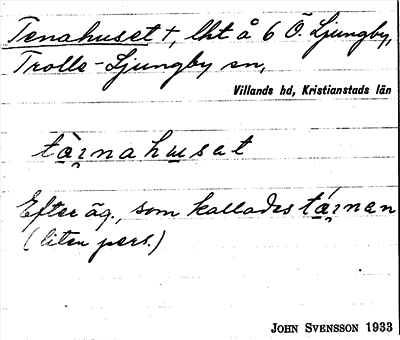 Tenahuset †, lht å 6 Ö. Ljungby,
Trolle-Ljungby sn,
Villands hd, Kristianstads län
tạ̀ɿnahɯsət
Efter äg., som kallades tạ́ɿnan
(liten pers.)
JOHN SVENSSON 1933